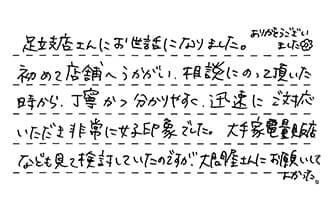 足立支店さんにお世話になりました。
ありがとうござい
ました
初めて店舗へうかがい、相談にのって頂いた
時から、丁寧かつ分かりやすく、迅速にご対応
いただき非常に好印象でした。大手家電量販店
なども見て検討していたのですが、大問屋さんにお願いして
よかった。